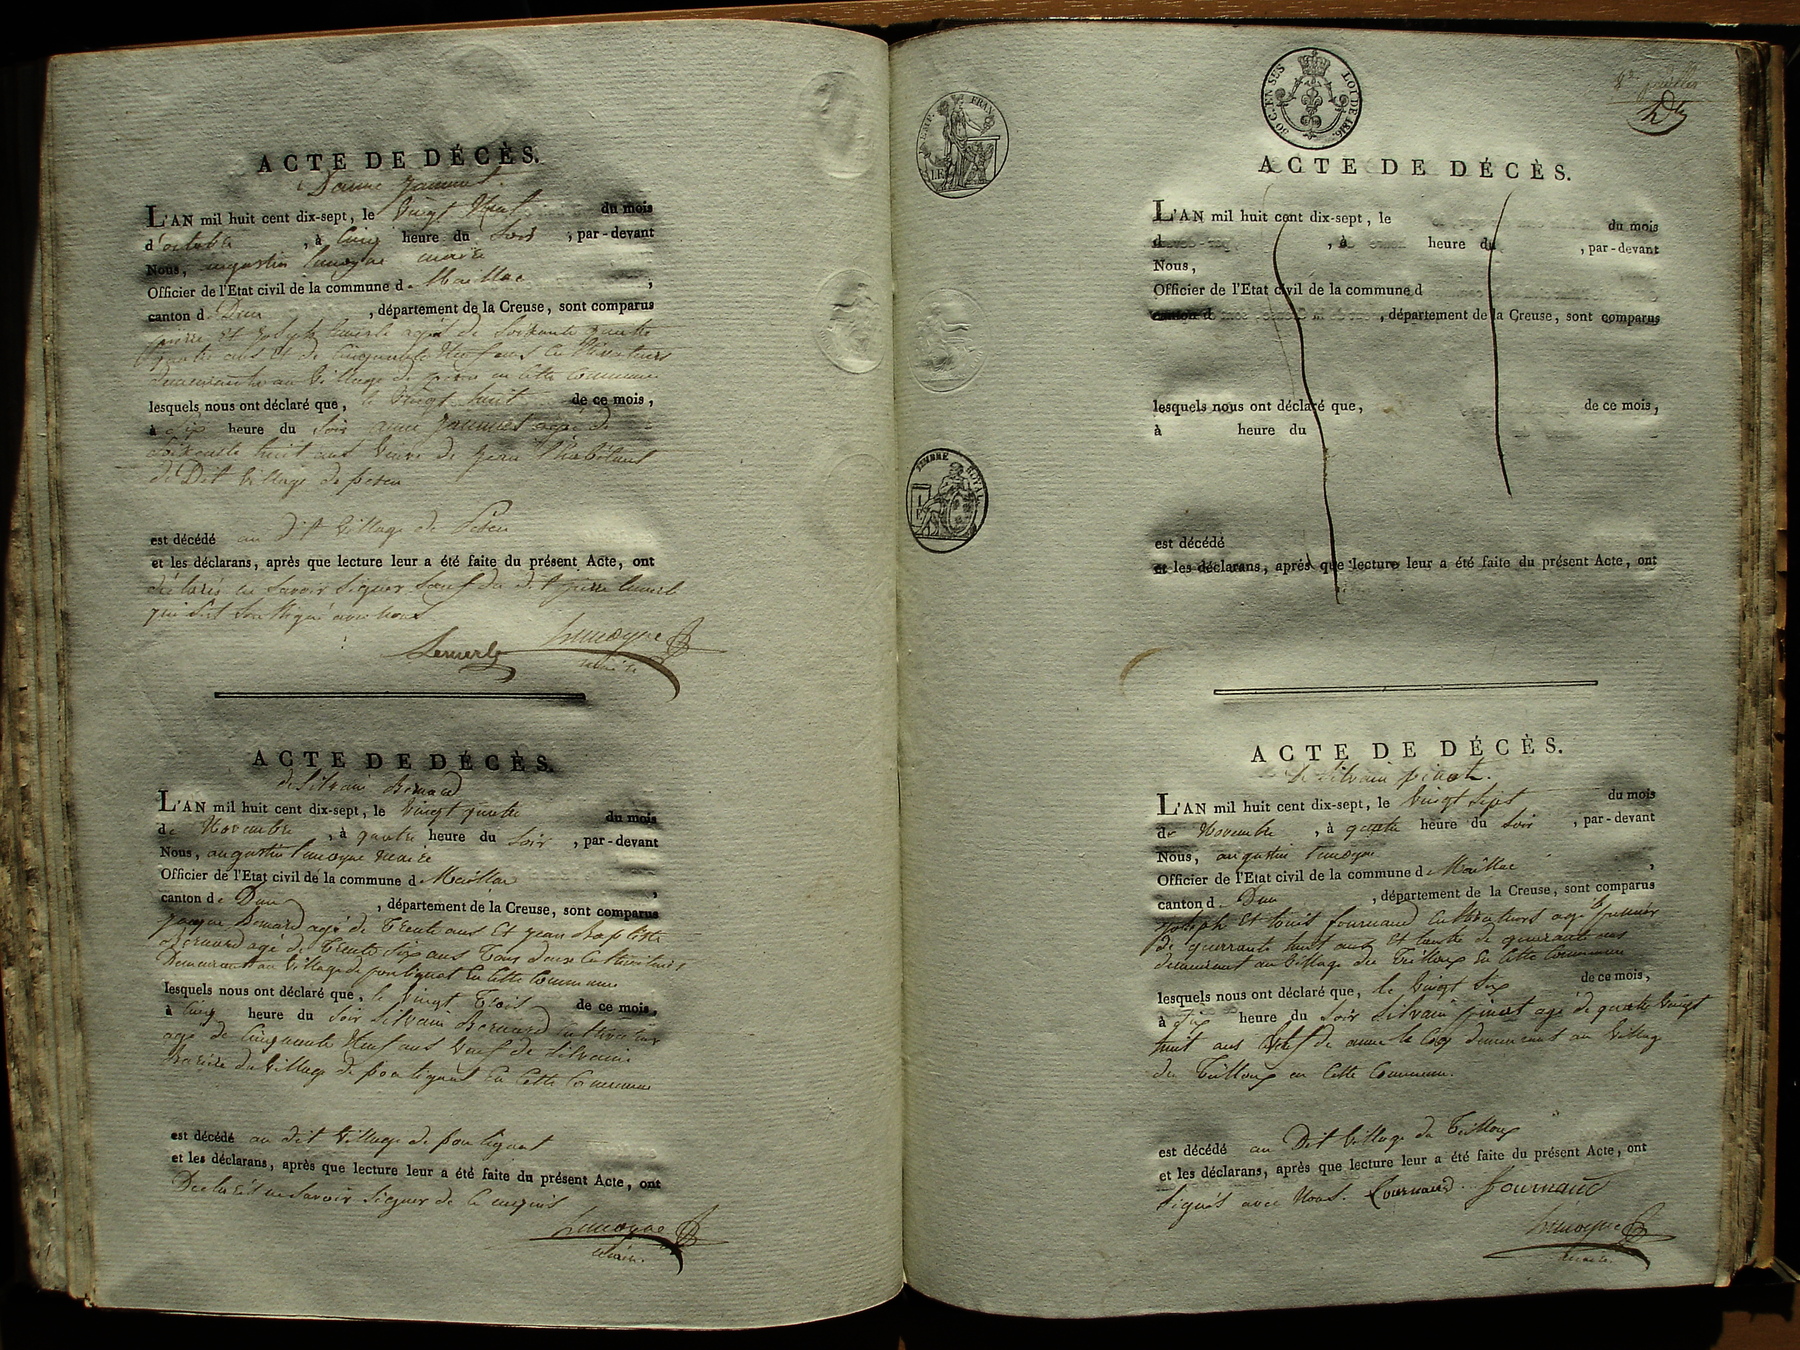 ACTE DE DÉCÈS.
D'anne jammet.
L'AN mil huit cent dix-sept, le vingt Neuf du mois
d'octobre, à Cinq heure du Soir, par-devant
Nous, augustin Lemoyne maire
Officier de l'Etat civil de la commune de Maillac,
canton de Dun, département de la Creuse, sont comparus
pierre et joseph Lemerle agés de Soixante
quatre ans et de Cinquante Neuf ans Cultivateurs
demeurants au Village de en Cette Commune
lesquels nous ont déclaré que, le Vingt huit de ce mois,
à Six heure du Soir anne agée de
Soixante huit ans Veuve de
du Dit Village de
est décédé au dit Village de
et les déclarans, après que lecture leur a été faite du présent Acte, ont
déclarés ne Savoir Signer Sauf le dit pierre Lemerle
qui S'est Soussigné avec nous
Lemerle Lemoyne
maire
ACTE DE DÉCÈS.
de Silvain Bernard
L'AN mil huit cent dix-sept, le Vingt quatre du mois
de Novembre, à quatre heure du Soir, par-devant
Nous, augustin Lemoyne Maire
Officier de l'Etat civil de la commune de Maillac,
canton de Dun, département de la Creuse, sont comparus
jacque Bernard agé de Trente ans Et jean Baptiste
Bernard agé de Trente Six ans Tous deux Cultivateurs
Demeurant au Village de pontignat En Cette Commune
lesquels nous ont déclaré que, le Vingt Trois de ce mois,
à Cinq heure du Soir Silvain Bernard cultivateur
agé de Cinquante Neuf ans Veuf de Silvaine
du Village de pontignat En Cette Commune
est décédé au dit Village de pontignat
et les déclarans, après que lecture leur a été faite du présent Acte, ont
Declarés ne Savoir Signer de Ce enquis
Lemoyne
maire.
TIMBRE ROYAL
50 C. EN SUS
LOI DE 1816.
ACTE DE DÉCÈS.
L'AN mil huit cent dix-sept, le du mois
d, à heure du, par-devant
Nous,
Officier de l'Etat civil de la commune d
canton d, département de la Creuse, sont comparus
lesquels nous ont déclaré que, de ce mois,
à heure du
est décédé
et les déclarans, après que lecture leur a été faite du présent Acte, ont
ACTE DE DÉCÈS.
De Silvain pinot.
L'AN mil huit cent dix-sept, le Vingt Sept du mois
de Novembre, à quatre heure du Soir, par-devant
Nous, augustin Lemoyne
Officier de l'Etat civil de la commune de Maillac,
canton de Dun, département de la Creuse, sont comparus
joseph Et Louis fournaud Cultivateurs agé le premier
de quarrante huit ans Et lautre de quarante ans
demeurant au Village du Trilloux En Cette Commune
lesquels nous ont déclaré que, le Vingt Six de ce mois,
à Six heure du Soir Silvain pinot agé de quatre Vingt
huit ans Veuf de anne le Coq demeurant au Village
du Trilloux en Cette Commune.
est décédé au Dit Village du Trilloux
et les déclarans, après que lecture leur a été faite du présent Acte, ont
Signés avec Nous. fournaud. fournaud
Lemoyne
maire.